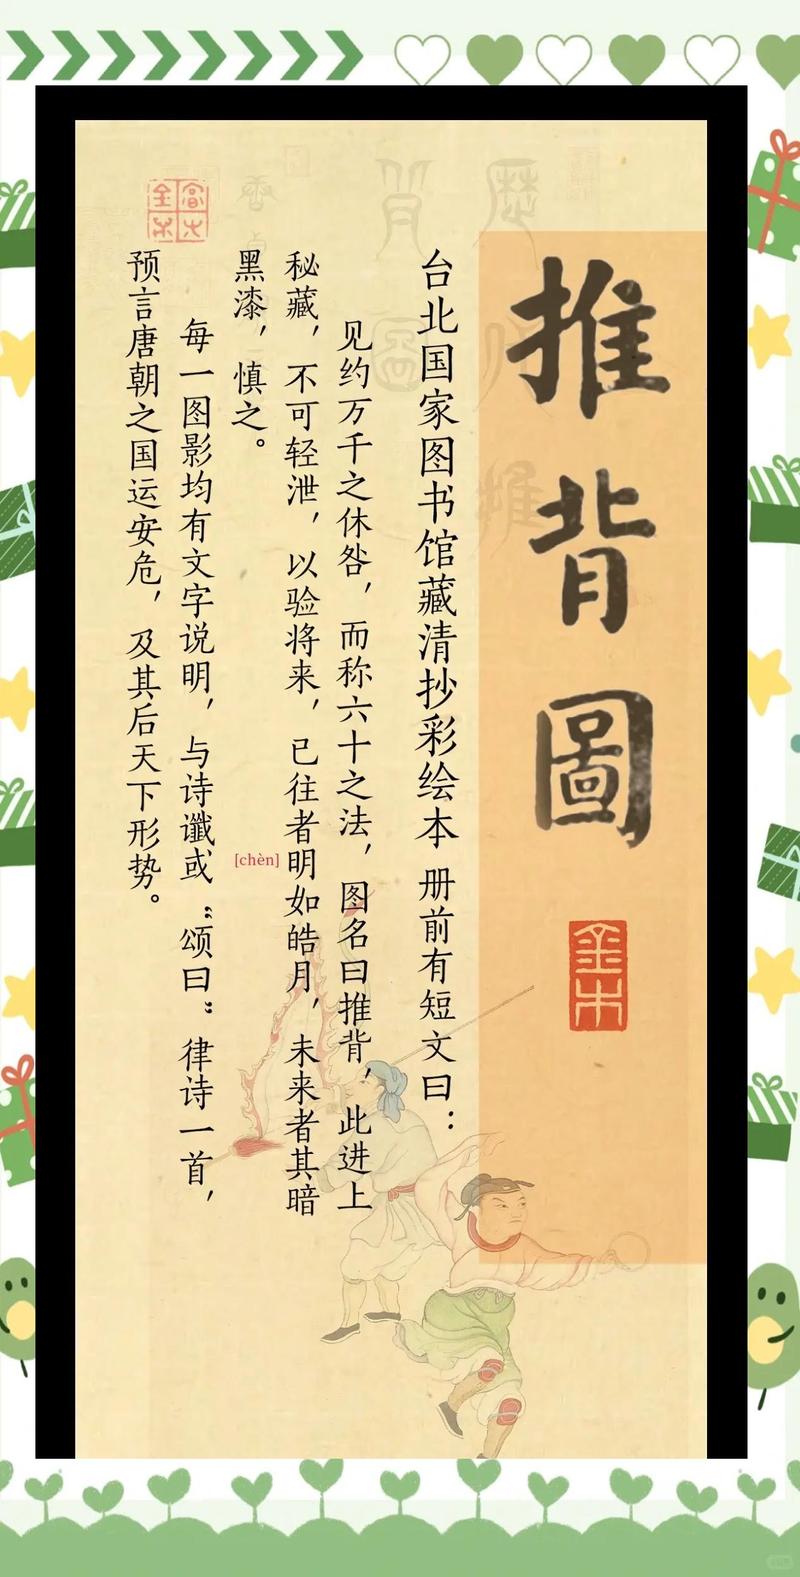 推背圖
金木
台北国家图书馆藏清抄彩绘本 册前有短文曰：
见约万千之休咎，而称六十之法，图名曰推背，此进上
秘藏，不可轻泄，以验将来，已往者明如皓月，未来者其暗
黑漆，慎之。
[chèn]
每一图影均有文字说明，与诗谶或“颂曰”律诗一首，
预言唐朝之国运安危，及其后天下形势。